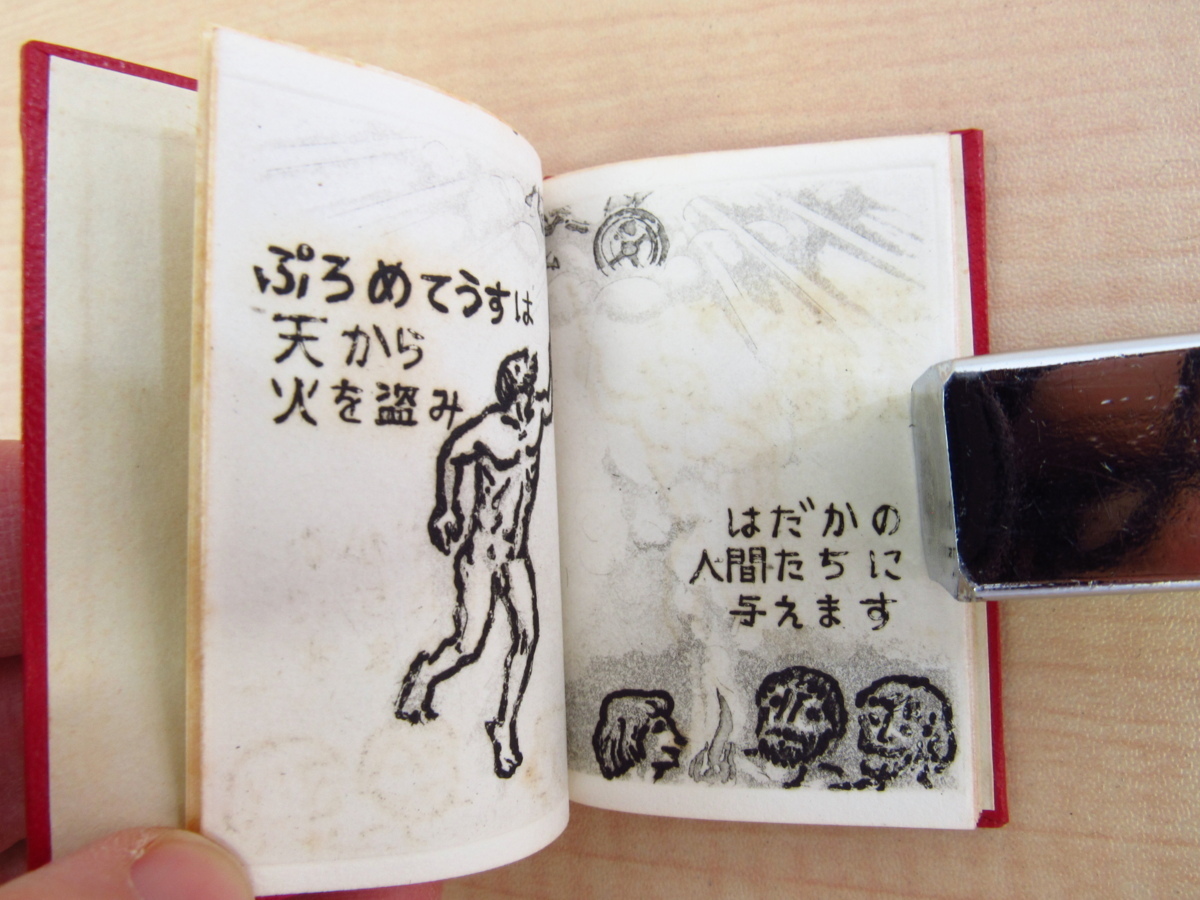 ぷろめてうすは
天から
火を盗み
はだかの
人間たちに
与えます